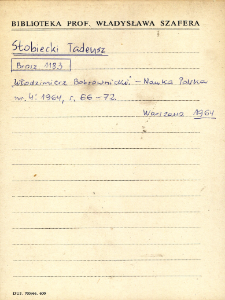 BIBLIOTEKA PROF. WŁADYSŁAWA SZAFERA
Stobiecki Tadeusz
Brosz 1183
"Włodzimierz Bobrownicki" - Nauka Polska
nr. 4: 1964, s. 66 - 72
Warszawa 1964